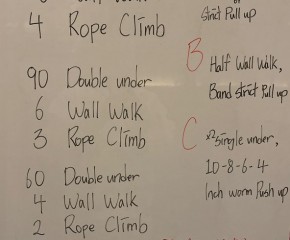 4 Rope Climb
90 Double under
6 Wall Walk
3 Rope Climb
60 Double under
4 Wall Walk
2 Rope Climb
Strict Pull up
B Half Wall Walk,
Band strict Pull up
C x2 Single under,
10-8-6-4
Inch worm Push up